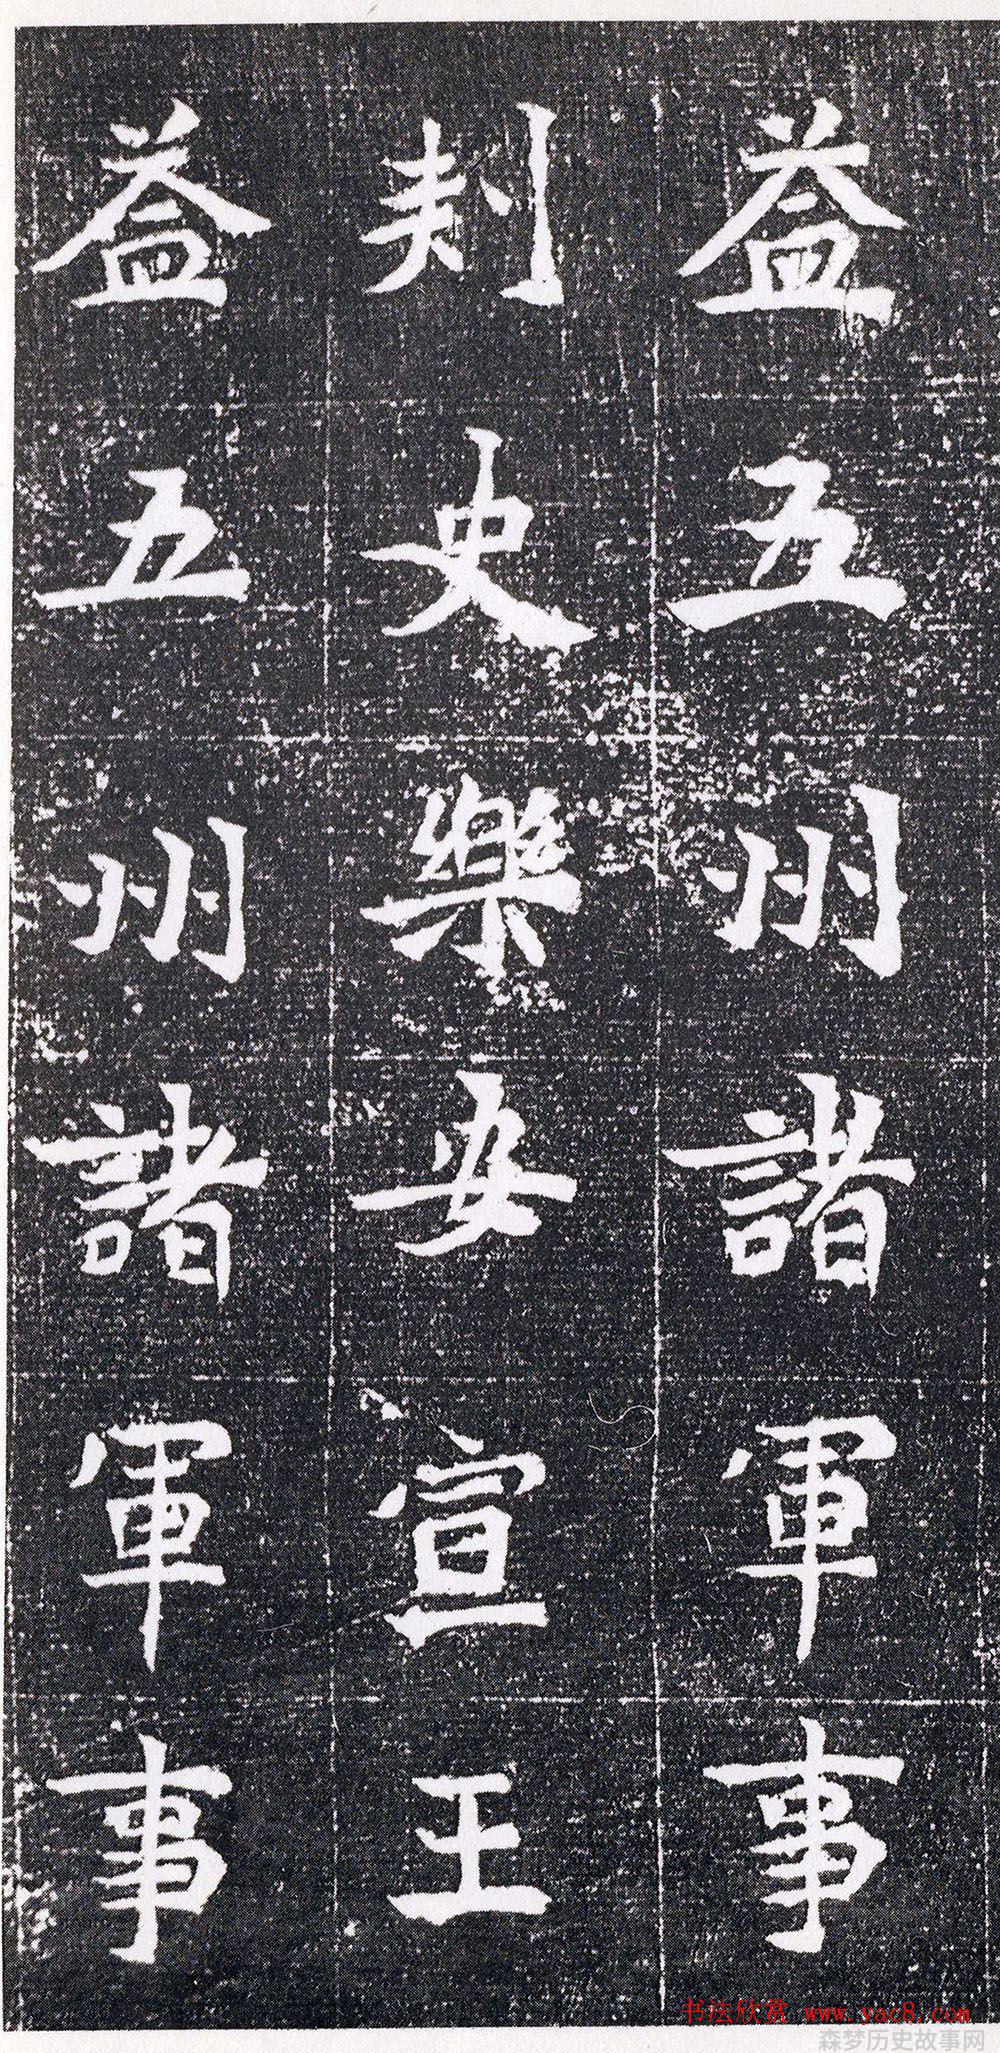 益五州諸軍事
刺史樂安宣王
益五州諸軍事
书法欣赏 www.yac8.com
森梦历史故事网